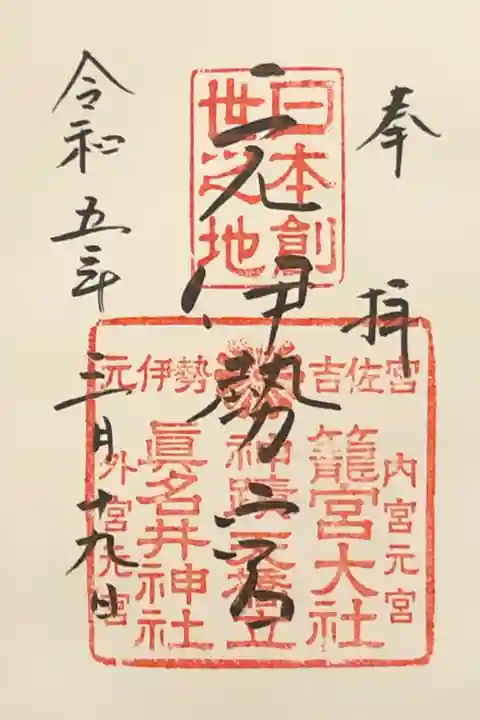 奉拝
元伊勢 宮
令和五年三月十九日
日本創
世之地
元伊勢 吉佐宮
内宮元宮
籠宮大社
神蹟天橋立
眞名井神社
外宮元宮